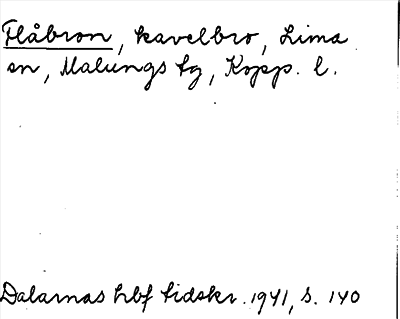 Flåbron, kavelbro, Lima
sn, Malungs tg, Kopp. l.
Dalarnas hbf tidskr. 1941, s. 140